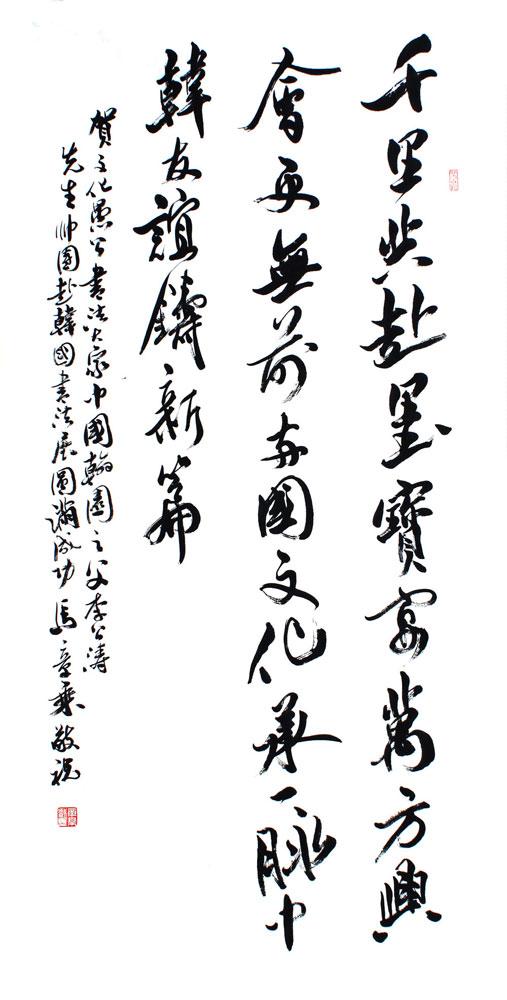 千里共赴墨寶宴萬方興
會更無前两國文化承一脉中
韓友誼鑄新篇
賀文化愚公書法大家中國翰園之父李公濤
先生帅團赴韓國書法展圓滿成功 馬章乘敬祝